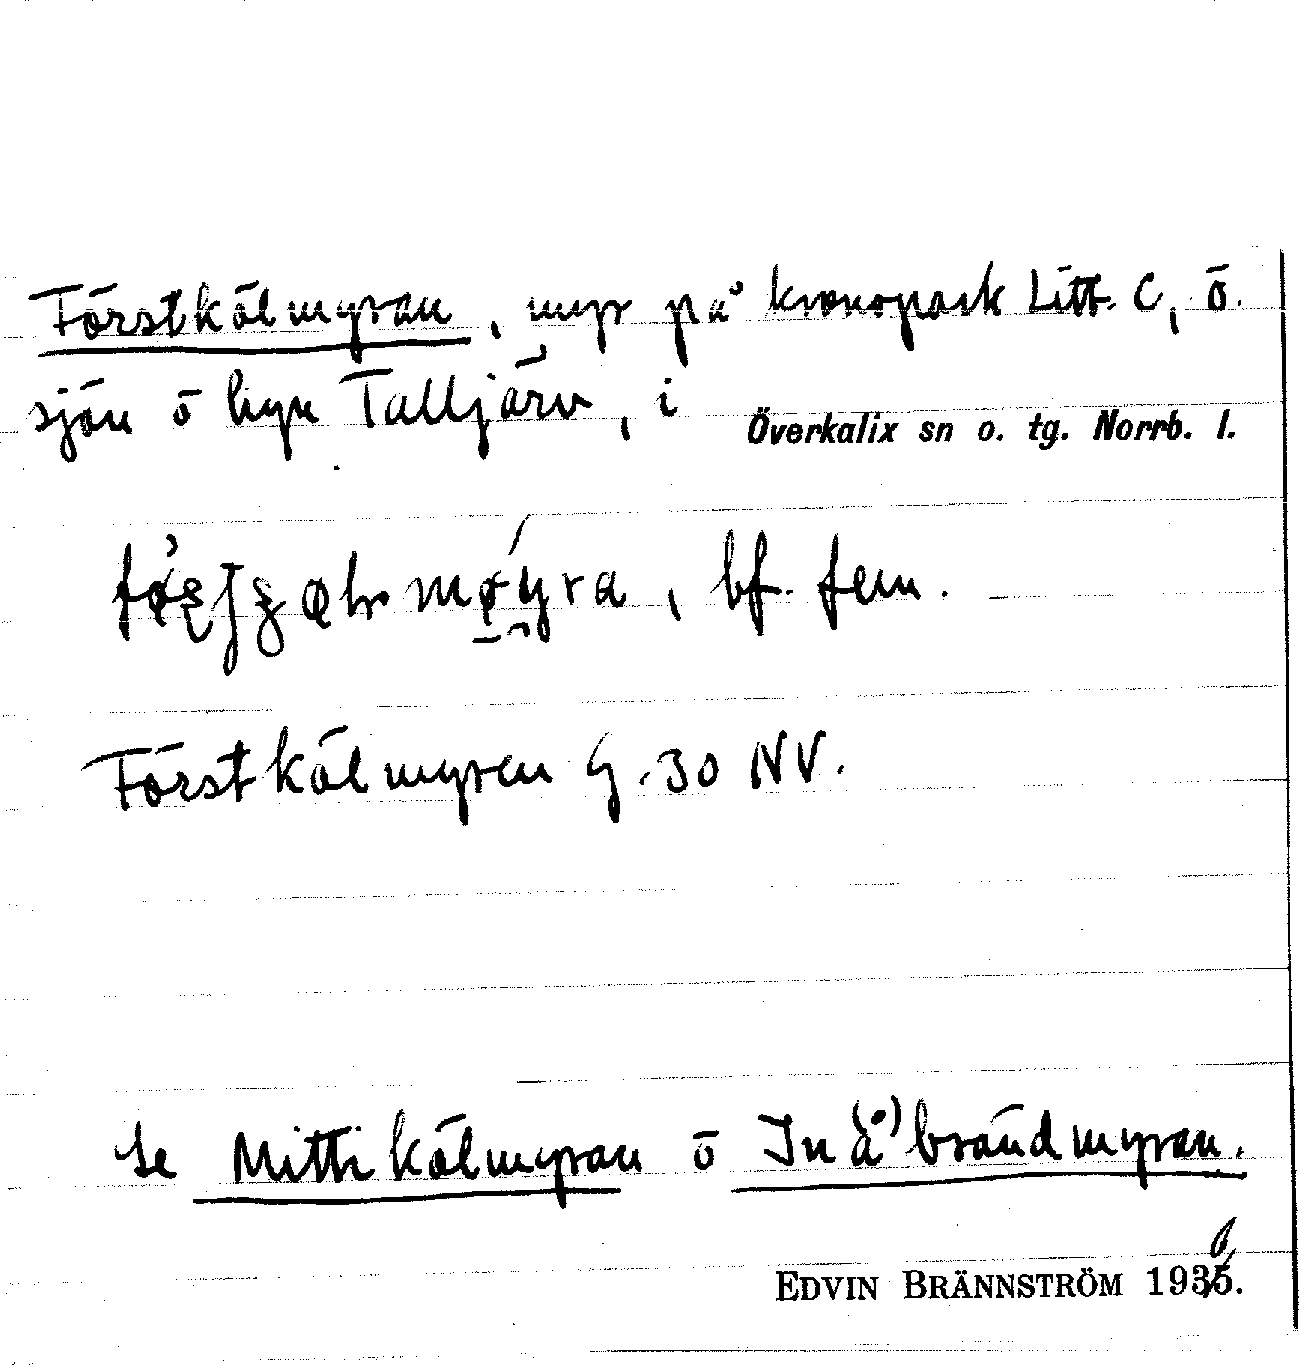 Förstkölmyran, myr på kronopark Litt. C, ö.
sjön o byn Talljärv, i Överkalix sn o. tg. Norrb. l.
bf. fem.
Förstkölmyren G. 30 NV.
Se Mittikölmyran o In(å)brändmyran.
EDVIN BRÄNNSTRÖM 193